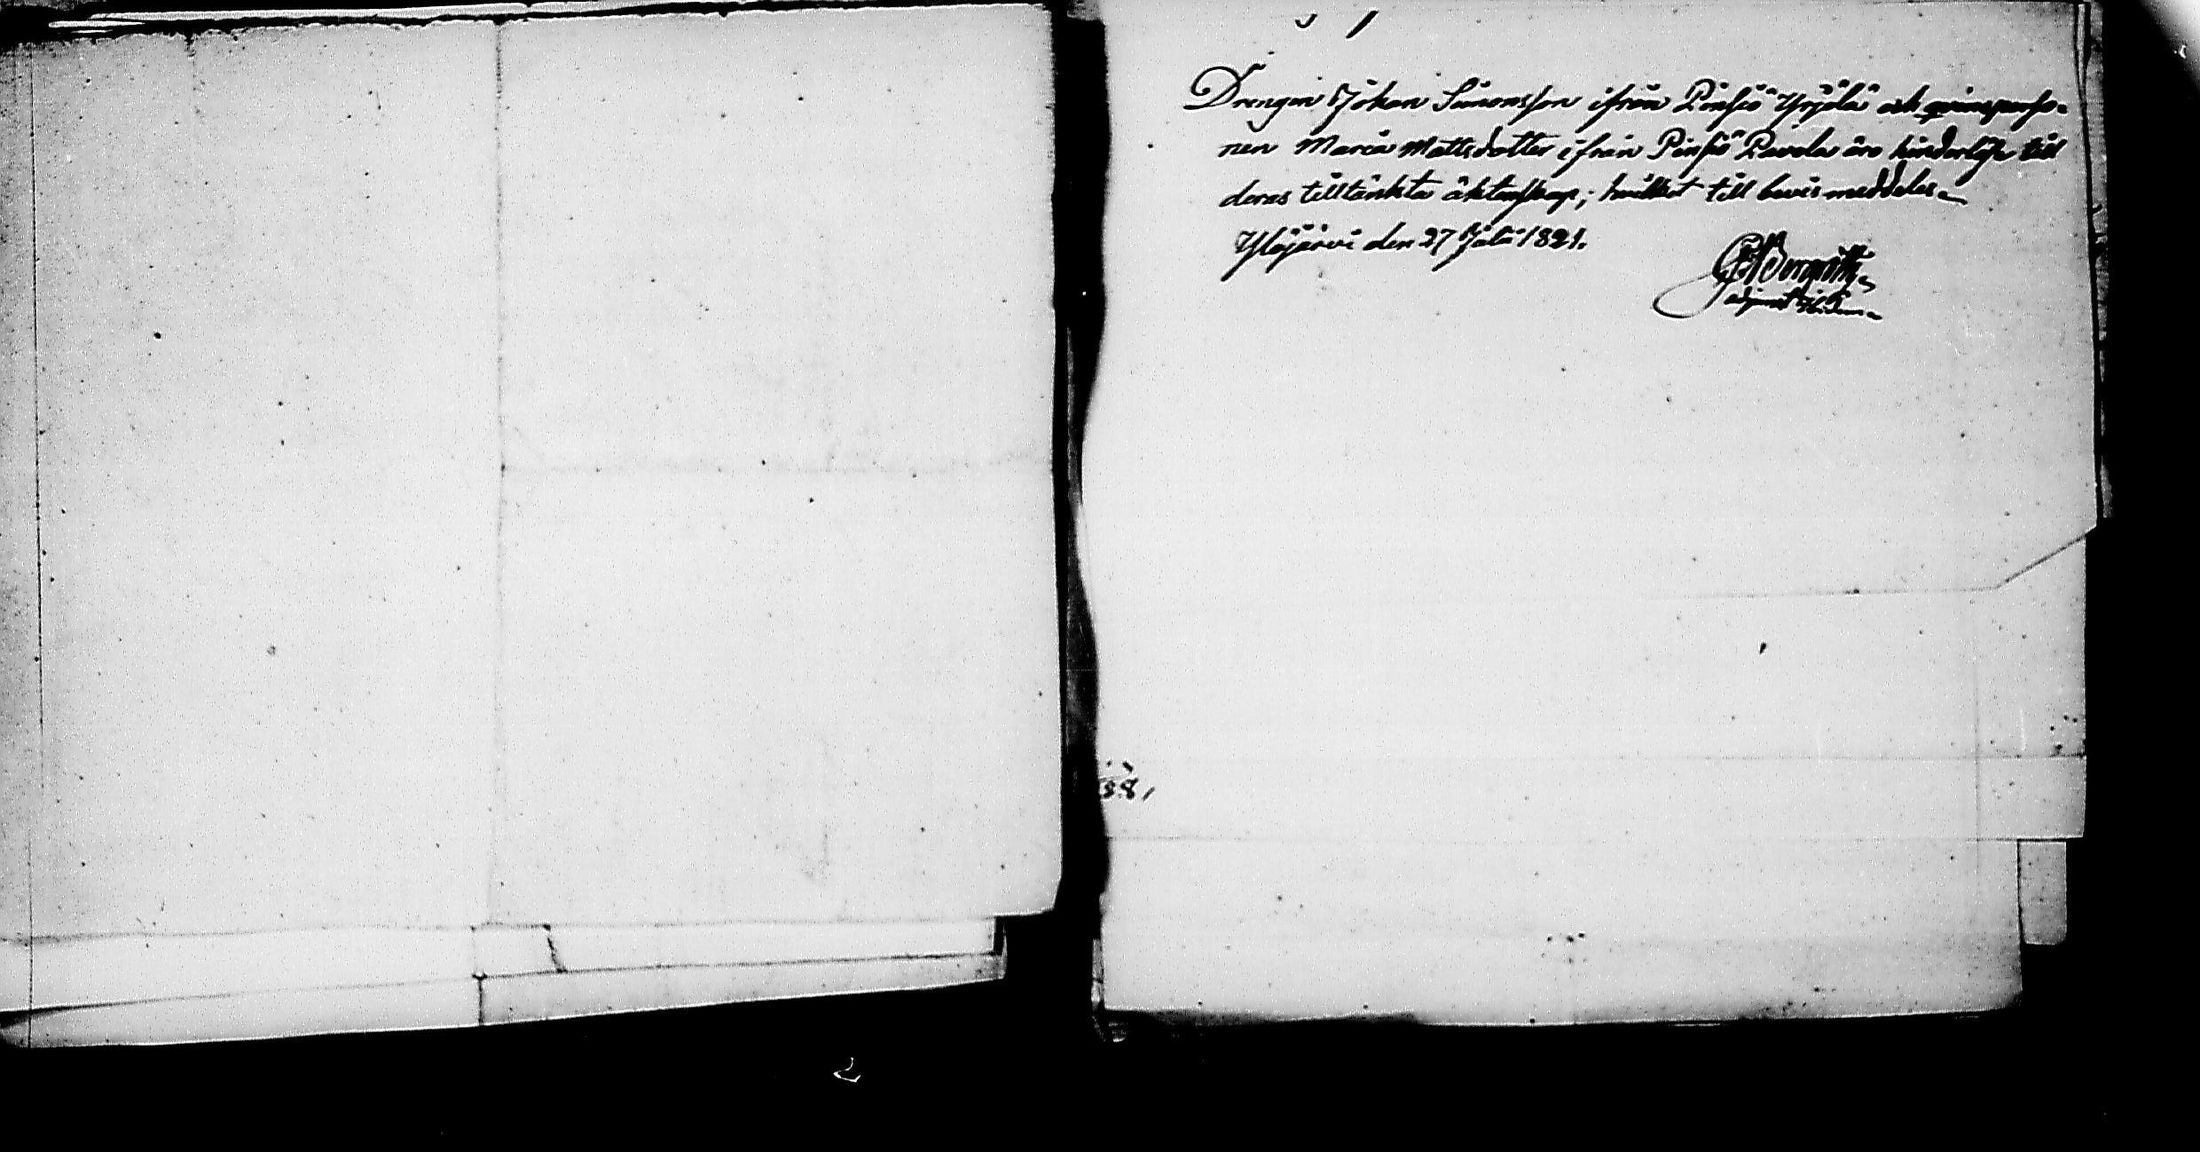 Drengen Johan Simonsson ifrån Pinsiö Yrjölä och qvinsperso-
nen Maria Mattsdotter ifrån Pinsiö Pavola äro hinderlöse till
deras tilltänkta äktenskap; hvilket till bevis meddeles.
Ylöjärvi den 27 Julii 1821.
38,